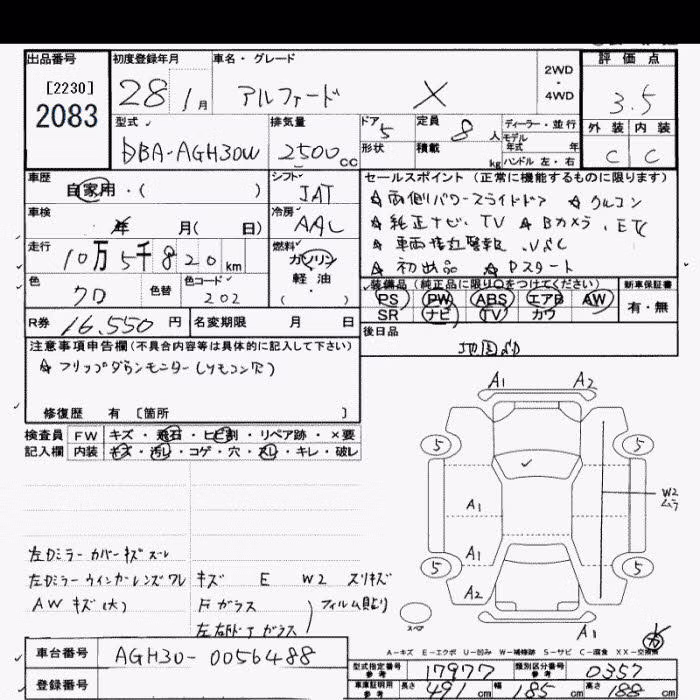 出品番号 初度登録年月 車名・グレード 2WD・4WD 評価点
[2230]
2083 28 1月 アルファード X 3.5
型式 排気量 ドア 5 定員 8人 ディーラー・並行 外装 内装
DBA-AGH30W 2500cc 形状 積載 kg モデル年式 年 ハンドル 左・右 C C
車歴 シフト セールスポイント (正常に機能するものに限ります)
自家用・( ) IAT ☆両側パワースライドドア ☆クルコン
車検 年 月( 日) 冷房 AAC ☆純正ナビ、TV ☆Bカメラ、ETC
走行 10万5千820km 燃料 ガソリン 軽油 ・( ) ☆車両接近警報、VSC
☆初出品 ☆Pスタート
色 クロ 色替 色コード 202 装備品 (純正品に限り○をつけてください) 新車保証書
PS PW ABS エアB AW 有・無
SR ナビ TV カワ
R券 16,550円 名変期限 月 日 後日品
地図SD
注意事項申告欄(不具合内容等は具体的に記入して下さい)
☆フリップダウンモニター(リモコン欠)
修復歴 有 [箇所 ]
検査員 FW キズ・飛石・ヒビ割・リペア跡・×要
記入欄 内装 キズ・汚レ・コゲ・穴・スレ・キレ・破レ
A1 A2
5 5
W2
ムラ
A1
A1
5 5
A2
A1
スペア
左Dミラー カバー キズ スレ
左Dミラー ウインカーレンズ ワレ キズ E W2 スリキズ
AW キズ(大) Fガラス フィルム貼り
左右ドアガラス
A-キズ E-エクボ U-凹み W-補修跡 S-サビ C-腐食 XX-交換済
車台番号 AGH30-0056488
型式指定番号 参考 17977 類別区分番号 参考 0357
登録番号 車庫証明用 参考 長さ 491cm 幅 185cm 高さ 188cm